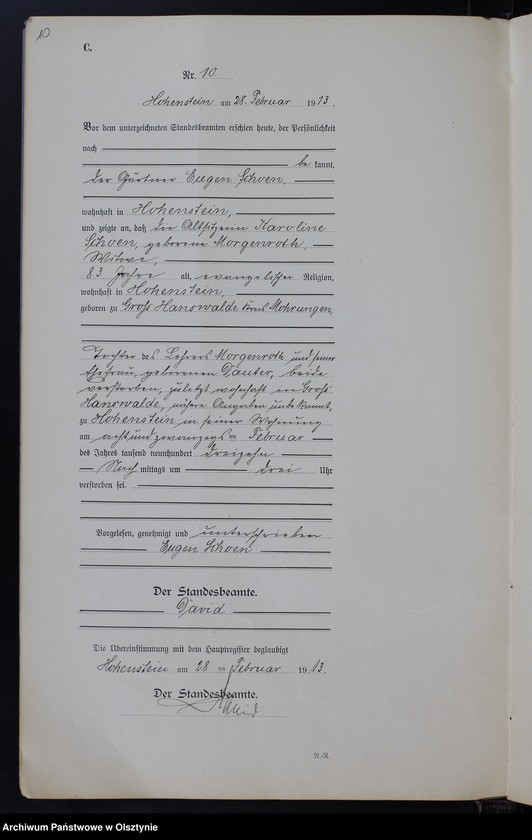 10
C.
Nr. 10
Hohenstein am 28. Februar 1913.
Vor dem unterzeichneten Standesbeamten erschien heute, der Persönlichkeit
nach
be kannt,
der Gärtner Eugen Schoen,
wohnhaft in Hohenstein,
und zeigte an, daß die Altsitzerin Karoline
Schoen, geborene Morgenroth,
Witwe,
83 Jahre alt, evangelischer Religion,
wohnhaft in Hohenstein,
geboren zu Groß Hanswalde Kreis Mohrungen,
Tochter des Lehrers Morgenroth und seiner
Ehefrau, geborenen Dauter, beide
verstorben, zuletzt wohnhaft in Groß
Hanswalde, nähere Angaben unbekannt,
zu Hohenstein in seiner Wohnung
am achtundzwanzigsten Februar
des Jahres tausend neunhundert dreizehn
Nach mittags um drei Uhr
verstorben sei.
Vorgelesen, genehmigt und unterschrieben
Eugen Schoen
Der Standesbeamte.
David
Die Übereinstimmung mit dem Hauptregister beglaubigt
Hohenstein am 28 ten Februar 1913.
Der Standesbeamte.
David
R.-R.
Archiwum Państwowe w Olsztynie